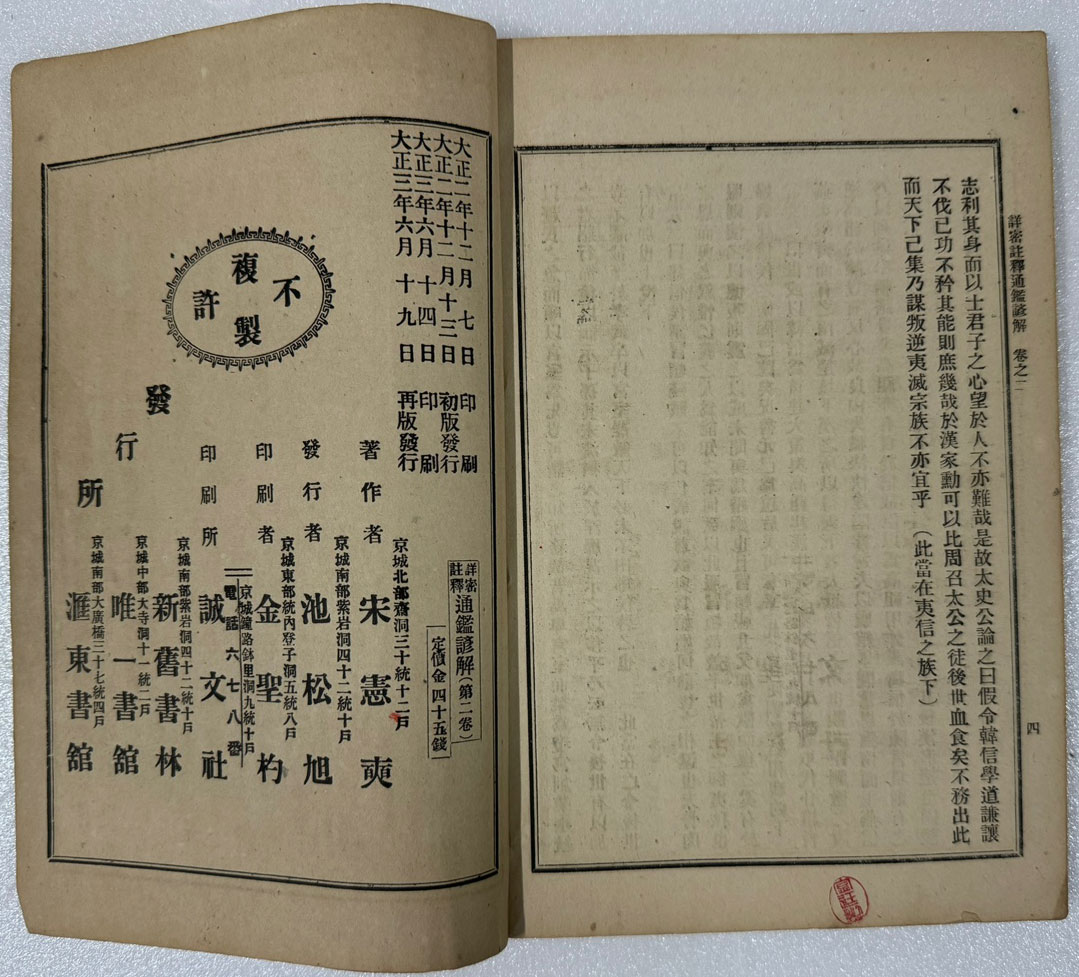 詳密註釋通鑑諺解 卷之二
四
志利其身而以士君子之心望於人不亦難哉是故太史公論之曰假令韓信學道謙讓
不伐己功不矜其能則庶幾哉於漢家勳可以比周召太公之徒後世血食矣不務出此
而天下已集乃謀叛逆夷滅宗族不亦宜乎(此當在夷信之族下)
大正二年十二月七日印刷
大正二年十二月十三日初版發行
大正三年六月十四日印刷
大正三年六月十九日再版發行
不許複製
詳密註釋通鑑諺解(第二卷)
定價金四十五錢
京城北部齋洞三十統十二戶
著作者 宋憲奭
京城南部紫岩洞四十二統十戶
發行者 池松旭
京城東部統內登子洞五統八戶
印刷者 金聖杓
京城鐘路鉢里洞九統十戶
電話六七八番
印刷所 誠文社
發行所
京城南部紫岩洞四十二統十戶
新舊書林
京城中部大寺洞十一統二戶
唯一書舘
京城南部大廣橋三十七統四戶
滙東書舘